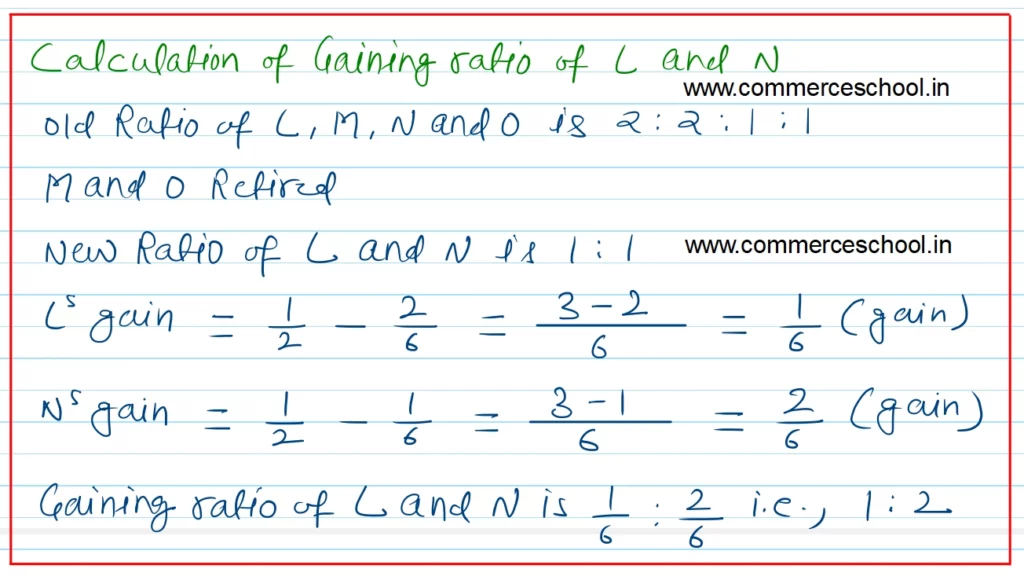 Calculation of Gaining ratio of L and N
www.commerceschool.in
Old Ratio of L, M, N and O is 2 : 2 : 1 : 1
M and O Retired
New Ratio of L and N is 1 : 1
www.commerceschool.in
L's gain = 1/2 - 2/6 = 3-2/6 = 1/6 (gain)
N's gain = 1/2 - 1/6 = 3-1/6 = 2/6 (gain)
Gaining ratio of L and N is 1/6 : 2/6 i.e., 1 : 2